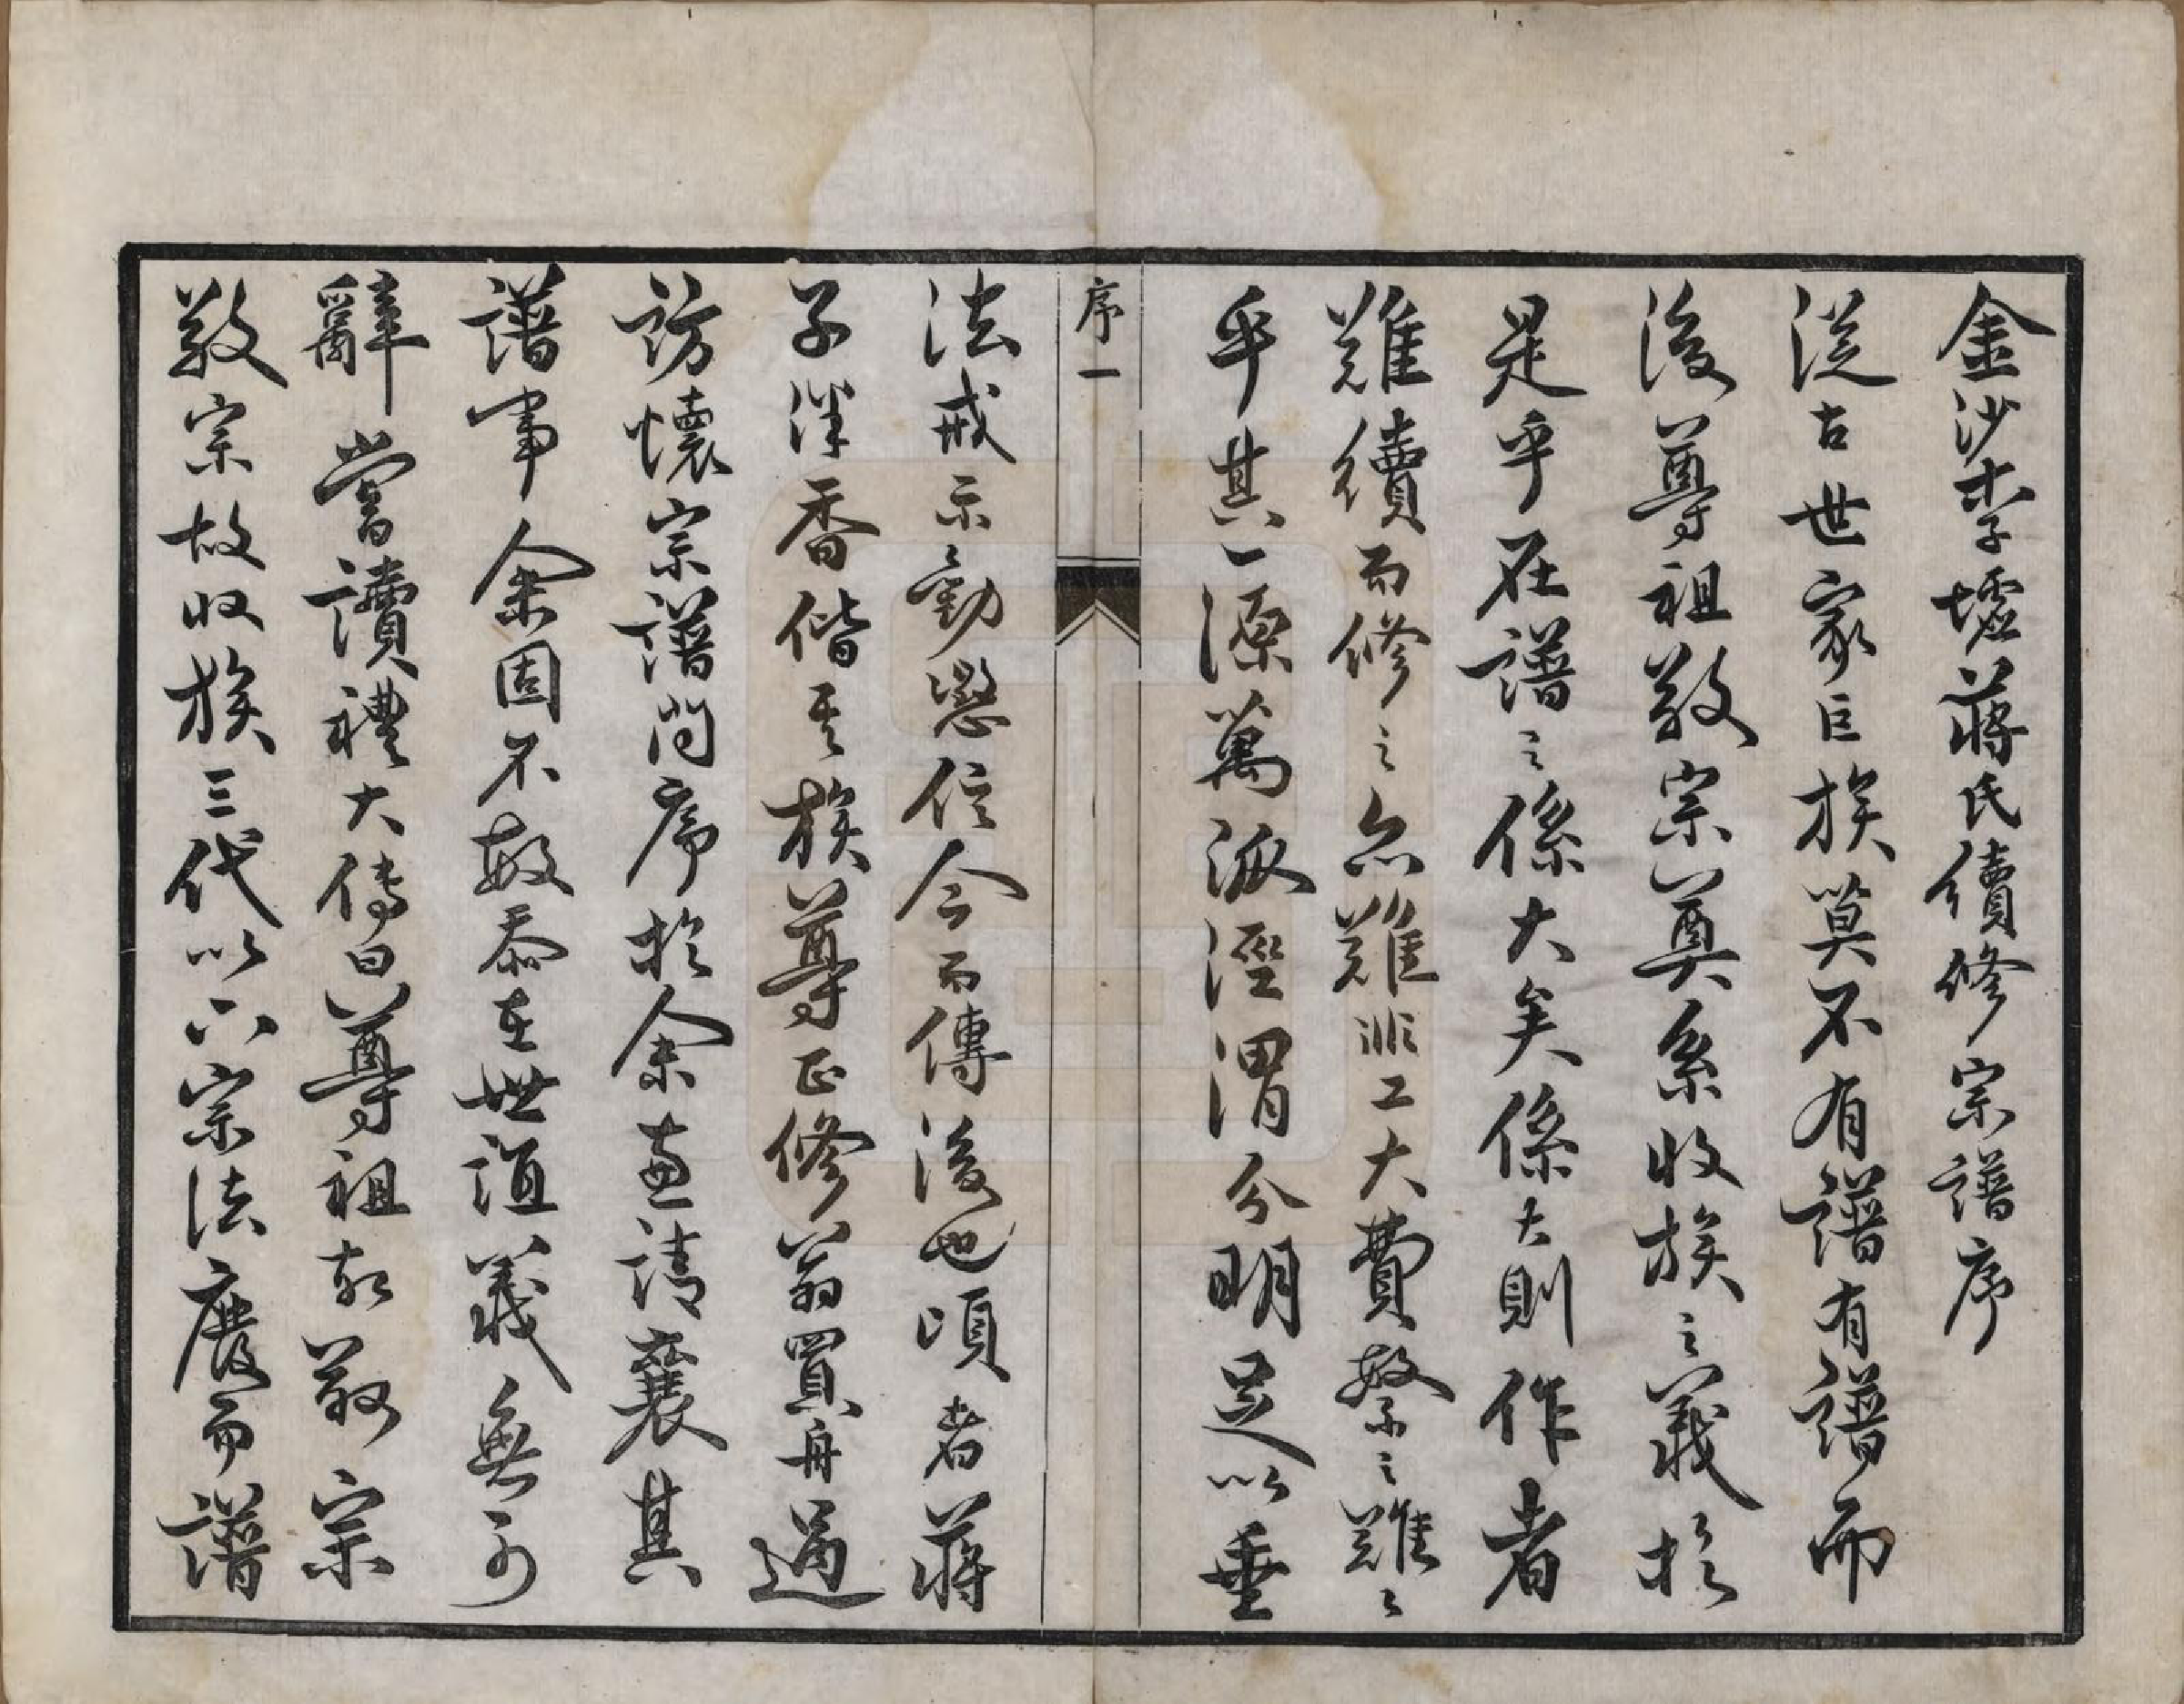 金沙李墟蔣氏續修宗譜序
從古世家巨族莫不有譜有譜而
後尊祖敬宗奠系收族之義於
是乎在譜之係大矣係大則作者
難續而修之亦難非工大費繁之難之
乎其一源萬派涇渭分明足以垂
序一
法戒示勸懲信今而傳後也頃者蔣
子泮香偕其族尊正修翁買舟過
訪懷宗譜問序於余並請襄其
譜事余固不敏忝在世誼義無可
辭嘗讀禮大傳曰尊祖故敬宗
敬宗故收族三代以下宗法廢而譜